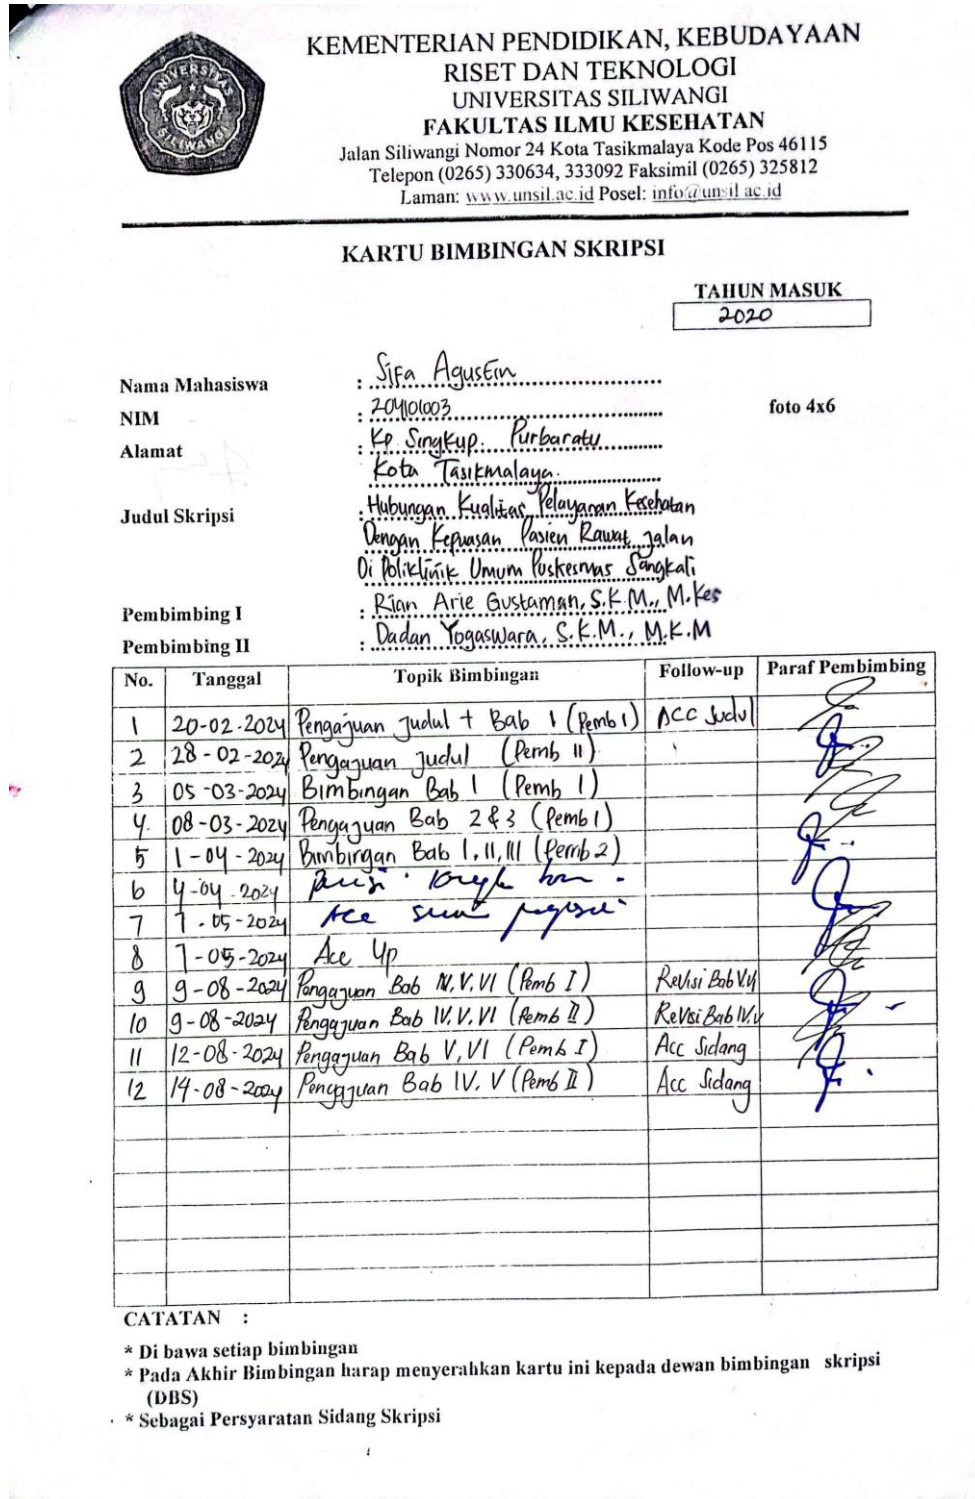 UNIVERSITAS SILIWANGI
KEMENTERIAN PENDIDIKAN, KEBUDAYAAN
RISET DAN TEKNOLOGI
UNIVERSITAS SILIWANGI
FAKULTAS ILMU KESEHATAN
Jalan Siliwangi Nomor 24 Kota Tasikmalaya Kode Pos 46115
Telepon (0265) 330634, 333092 Faksimil (0265) 325812
Laman: www.unsil.ac.id Posel: info@unsil.ac.id
KARTU BIMBINGAN SKRIPSI
TAHUN MASUK
2020
Nama Mahasiswa : Sifa Agustin
NIM : 204101003 foto 4x6
Alamat : Kp. Singkup. Purbaratu
Kota Tasikmalaya.
Judul Skripsi : Hubungan Kualitas Pelayanan Kesehatan
Dengan Kepuasan Pasien Rawat Jalan
Di Poliklinik Umum Puskesmas Sangkali
Pembimbing I : Rian Arie Gustaman, S.K.M., M.Kes
Pembimbing II : Dadan Yogaswara, S.K.M., M.K.M
No. Tanggal Topik Bimbingan Follow-up Paraf Pembimbing
1 20-02-2024 Pengajuan Judul + Bab 1 (Pemb 1) ACC Judul
2 28-02-2024 Pengajuan Judul (Pemb II)
3 05-03-2024 Bimbingan Bab 1 (Pemb 1)
4. 08-03-2024 Pengajuan Bab 2 & 3 (Pemb 1)
5 1-04-2024 Bimbingan Bab I, II, III (Pemb 2)
6 4-04-2024
7 7-05-2024 Acc
8 7-05-2024 Acc Up
9 9-08-2024 Pengajuan Bab IV, V, VI (Pemb I) Revisi Bab V.VI
10 9-08-2024 Pengajuan Bab IV, V, VI (Pemb II) Revisi Bab IV.V
11 12-08-2024 Pengajuan Bab V, VI (Pemb I) Acc Sidang
12 14-08-2024 Pengajuan Bab IV, V (Pemb II) Acc Sidang
CATATAN :
* Di bawa setiap bimbingan
* Pada Akhir Bimbingan harap menyerahkan kartu ini kepada dewan bimbingan skripsi
(DBS)
* Sebagai Persyaratan Sidang Skripsi